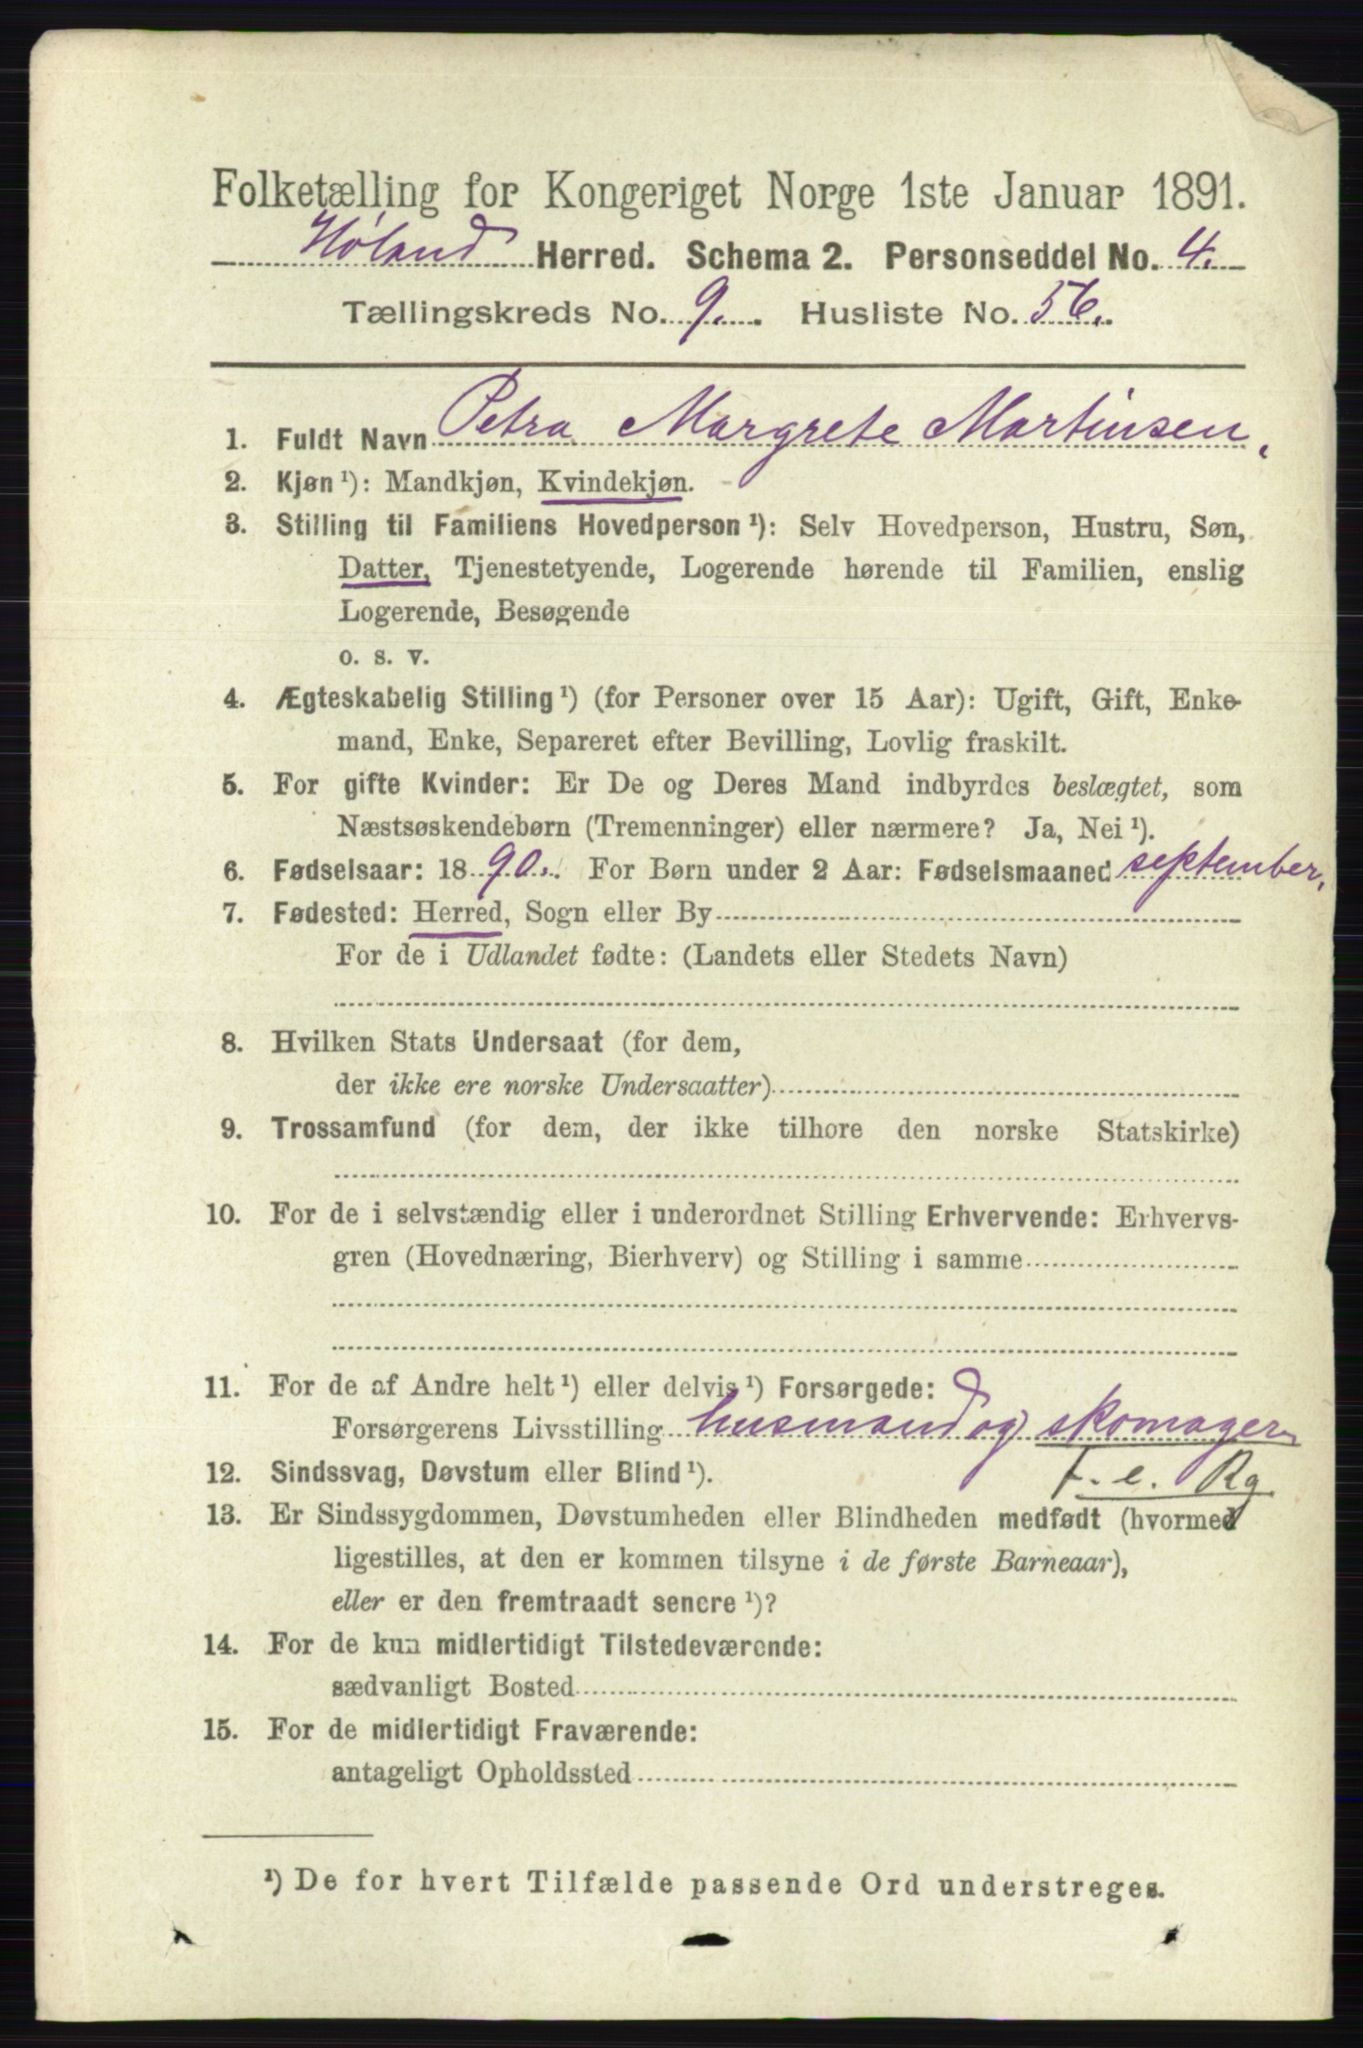 Folketælling for Kongeriget Norge 1ste Januar 1891.
Høland Herred. Schema 2. Personseddel No. 4.
Tællingskreds No. 9. Husliste No. 56.
1. Fuldt Navn Petra Margrete Martinsen,
2. Kjøn ¹): Mandkjøn, Kvindekjøn.
3. Stilling til Familiens Hovedperson ¹): Selv Hovedperson, Hustru, Søn,
Datter, Tjenestetyende, Logerende hørende til Familien, enslig
Logerende, Besøgende
o. s. v.
4. Ægteskabelig Stilling ¹) (for Personer over 15 Aar): Ugift, Gift, Enke-
mand, Enke, Separeret efter Bevilling, Lovlig fraskilt.
5. For gifte Kvinder: Er De og Deres Mand indbyrdes beslægtet, som
Næstsøskendebørn (Tremenninger) eller nærmere? Ja, Nei ¹).
6. Fødselsaar: 1890. For Børn under 2 Aar: Fødselsmaaned september,
7. Fødested: Herred, Sogn eller By
For de i Udlandet fødte: (Landets eller Stedets Navn)
8. Hvilken Stats Undersaat (for dem,
der ikke ere norske Undersaatter)
9. Trossamfund (for dem, der ikke tilhøre den norske Statskirke)
10. For de i selvstændig eller i underordnet Stilling Erhvervende: Erhvervs-
gren (Hovednæring, Bierhverv) og Stilling i samme
11. For de af Andre helt ¹) eller delvis ¹) Forsørgede:
Forsørgerens Livsstilling husmand og skomager
12. Sindssvag, Døvstum eller Blind ¹). F. e. Rg
13. Er Sindssygdommen, Døvstumheden eller Blindheden medfødt (hvormed
ligestilles, at den er kommen tilsyne i de første Barneaar),
eller er den fremtraadt senere ¹)?
14. For de kun midlertidigt Tilstedeværende:
sædvanligt Bosted
15. For de midlertidigt Fraværende:
antageligt Opholdssted
¹) De for hvert Tilfælde passende Ord understreges.